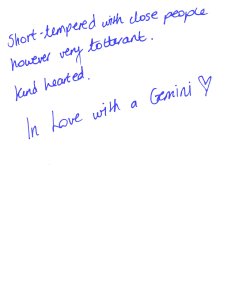 Short-tempered with close people
however very tollarant.
kind hearted.
In Love with a Gemini ♡